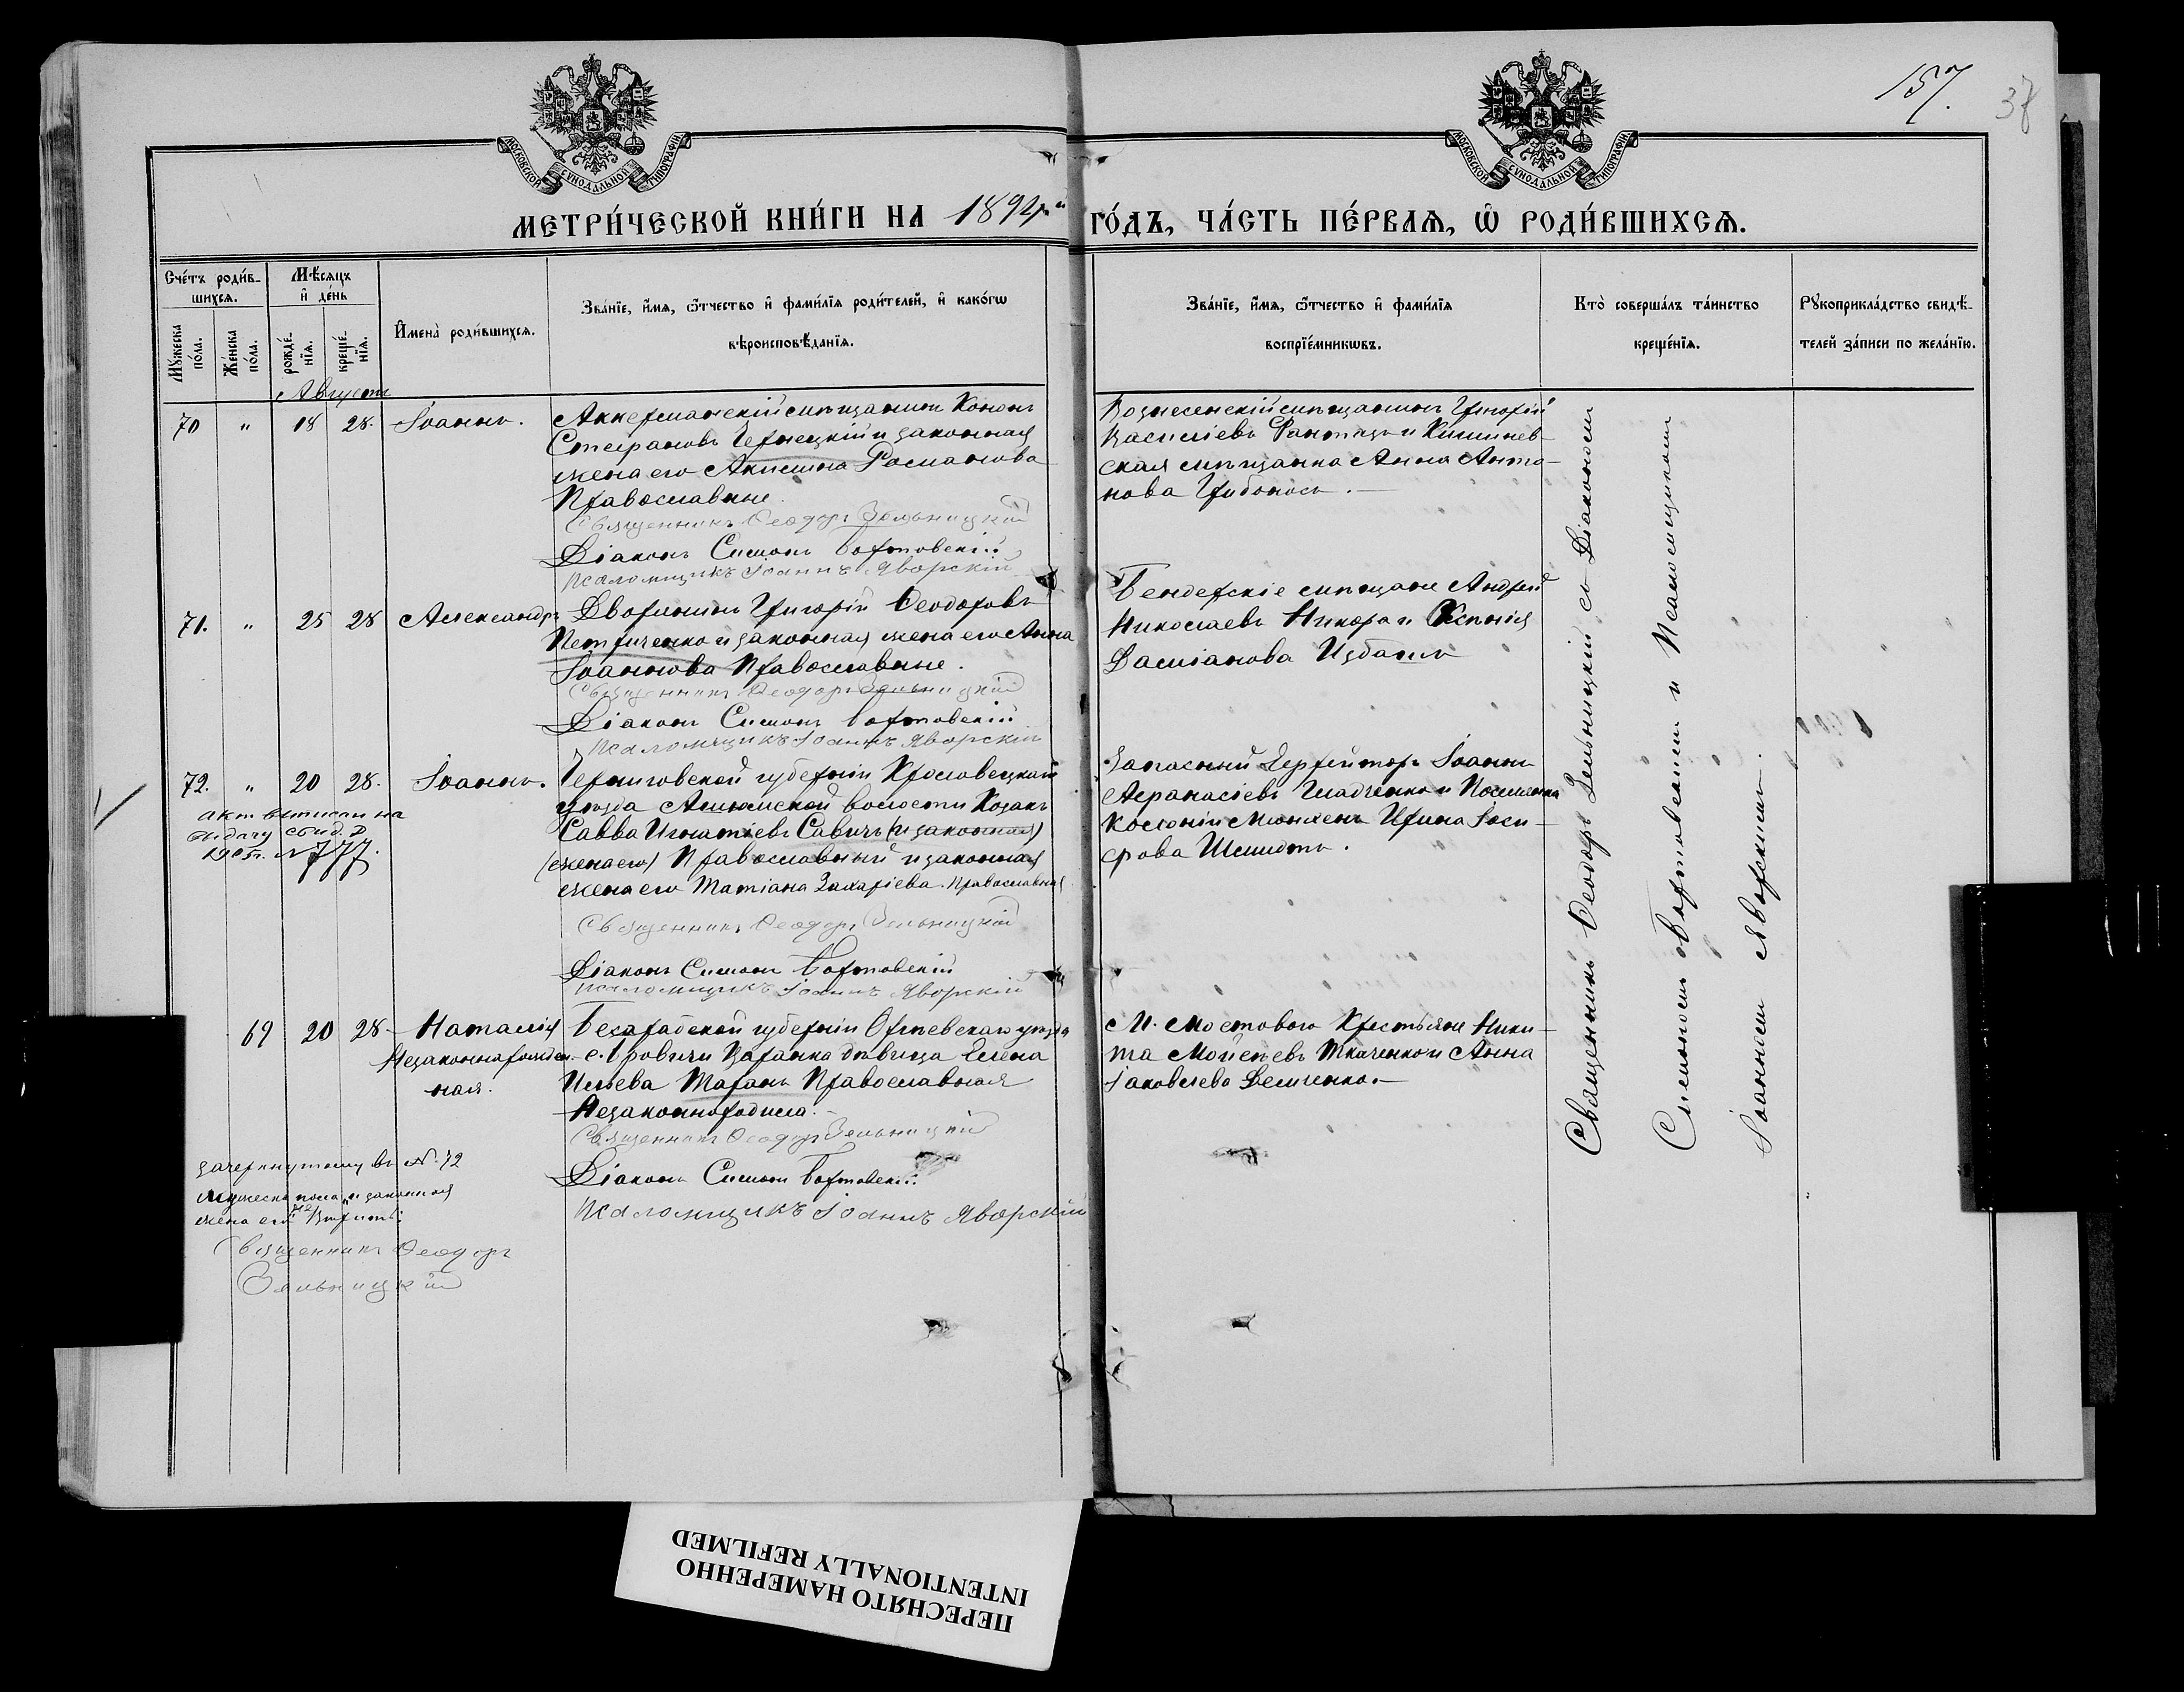 157.
37
МОСКОВСКОЙ СѴНОДАЛЬНОЙ ТИПОГРАФІИ
МОСКОВСКОЙ СѴНОДАЛЬНОЙ ТИПОГРАФІИ
МЕТРИ́ЧЕСКОЙ КНИ́ГИ НА 1894й ГО́ДЪ, ЧА́СТЬ ПЕ́РВАѦ, Ѡ҆ РОДИ́ВШИХСѦ.
Сче́тъ роди́в-
шихсѧ.
Мꙋ́жеска по́ла.
Же́нска по́ла.
Мѣ́сѧцъ и҆ де́нь
рожде́-
нїѧ.
креще́-
нїѧ.
И҆мена̀ роди́вшихсѧ.
Зва́нїе, и҆́мѧ, ѻ҆́тчество и҆ фами́лїѧ роди́телей, и҆ како́гѡ
вѣроисповѣ́данїѧ.
Зва́нїе, и҆́мѧ, ѻ҆́тчество и҆ фами́лїѧ
воспрїе́мникѡвъ.
Кто̀ соверша́лъ та́инство
креще́нїѧ.
Рꙋкоприкла́дство свидѣ́-
телей за́писи по жела́нїю.
Августъ
70 " 18 28. Іоаннъ.
Аккерманскій мѣщанинъ Кононъ
Стефановъ Чернецкій и законная
жена его Акилина Романова
Православные.
Священникъ Ѳеодоръ Зельницкій
Діаконъ Симеонъ Бортовскій
Псаломщикъ Іоаннъ Яворскій
Вознесенскій мѣщанинъ Григорій
Василіевъ Фантазъ и Кишинев-
ская мѣщанка Анна Анто-
нова Грибоносъ.
71. " 25 28 Александръ
Дворянинъ Григорій Ѳеодоровъ
Петриченко и законная жена его Анна
Іоаннова Православные.
Священникъ Ѳеодоръ Зельницкій
Діаконъ Симеонъ Бортовскій
Псаломщикъ Іоаннъ Яворскій
Бендерскіе мѣщане Андрей
Николаевъ Никора и Ксенія
Даміанова Избашъ
72. " 20 28. Іоаннъ.
актъ выписан на
выдачу свид. в
1905 г. № 777.
Черниговской губерніи Кролевецкаго
уѣзда Алтыновской волости Козакъ
Савва Игнатіевъ Савичъ (и законная)
(жена его) Православный и законная
жена его Татіана Захаріева. Православная
Священникъ Ѳеодоръ Зельницкій
Діаконъ Симеонъ Бортовскій
Псаломщикъ Іоаннъ Яворскій
Запасный Ефрейторъ Іоаннъ
Аѳанасіевъ Гладченко и Поселянка
Колоніи Мюнхенъ Ирина Іоси-
фова Шмидтъ.
69 20 28 Наталія
Незаконнорожден-
ная.
Бесарабской губерніи Оргѣевскаго уѣзда
с. Яровичи Царанка дѣвица Елена
Ильева Таранъ Православная
Незаконнородила.
Священникъ Ѳеодоръ Зельницкій
Діаконъ Симеонъ Бортовскій
Псаломщикъ Іоаннъ Яворскій
М. Мостового Крестьяне Ники-
та Мойсеевъ Ткаченко и Анна
Іаковлева Демченко.
зачеркнутому въ № 72
мужеска пола "и законная
жена его" не вѣрить
Священникъ Ѳеодоръ
Зельницкій
Священникъ Ѳеодоръ Зельницкій съ Діакономъ
Симеономъ Бортовскимъ и Псаломщикомъ
Іоанномъ Яворскимъ.
ПЕРЕСНЯТО НАМЕРЕННО
INTENTIONALLY REFILMED